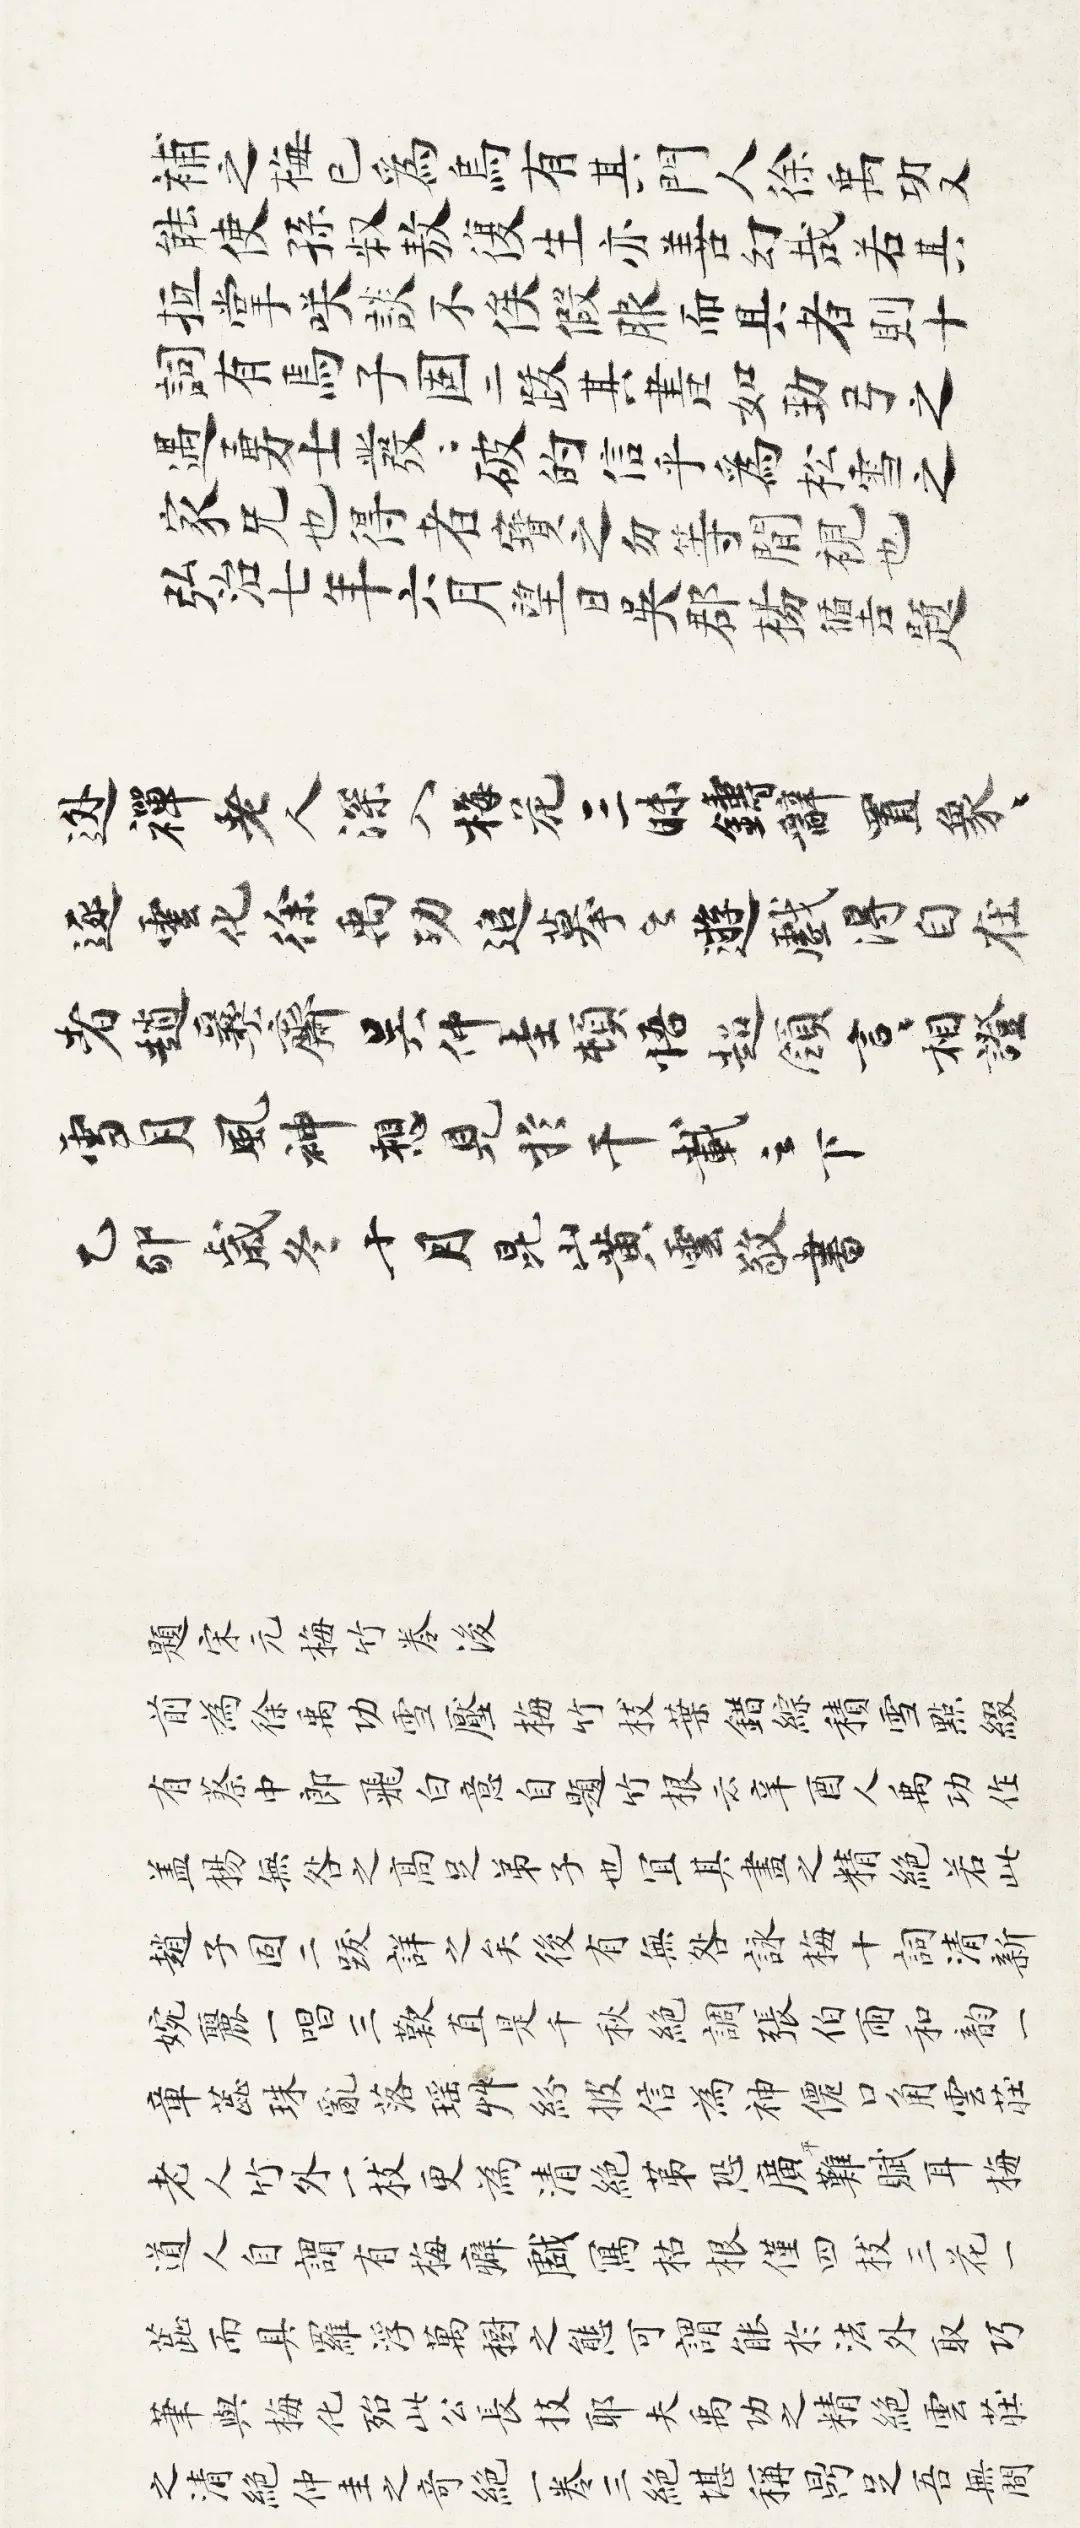 補之梅已爲烏有其門人徐禹功又
能使孫叔敖復生亦善幻哉若其
抵掌咲談不俟假服而具者則十
詞有焉子固二跋其書如勁弓之
遇勇士發：破的信乎爲松雪之
家兄也得者寶之勿等閒視也
弘治七年六月望日吳郡楊循吉題
逃禪老人深入梅花三昧鑄辭置象：
逐雲化徐禹功追摹之遊戲得自在
者趙彝齋吳仲圭頓悟趙領言：相證
雪月風神想見於千載之下
乙卯歲冬十月昆山黃雲敬書
題宋元梅竹卷後
前為徐禹功雪壓梅竹枝葉錯綜積雪點綴
有蔡中郎飛白意自題竹根云辛酉人禹功作
盖楊無咎之高足弟子也宜其畫之精絕若此
趙子固二跋詳之矣後有無咎詠梅十詞清新
婉麗一唱三歎直是千秋絕調張伯雨和韵一
章蕊珠亂落瑶艸紛披信為神僊口角雲莊
老人竹外一枝更為清絕苐恐廣平難賦耳梅
道人自謂有梅癖戲寫枯根僅四枝三花一
蕋而具羅浮萬樹之態可謂能於法外取巧
筆與梅化殆此公長技耶夫禹功之精絕雲莊
之清絕仲圭之奇絕一卷三絕堪稱鼎足吾無間